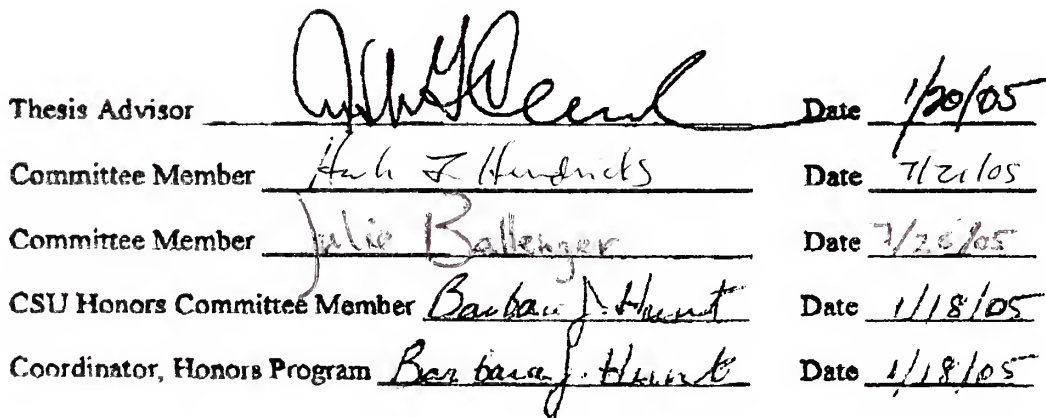 Thesis Advisor Date 1/20/05
Committee Member Hendricks Date 7/21/05
Committee Member Julie Ballenger Date 7/25/05
CSU Honors Committee Member Barbara J. Hunt Date 1/18/05
Coordinator, Honors Program Barbara J. Hunt Date 1/18/05